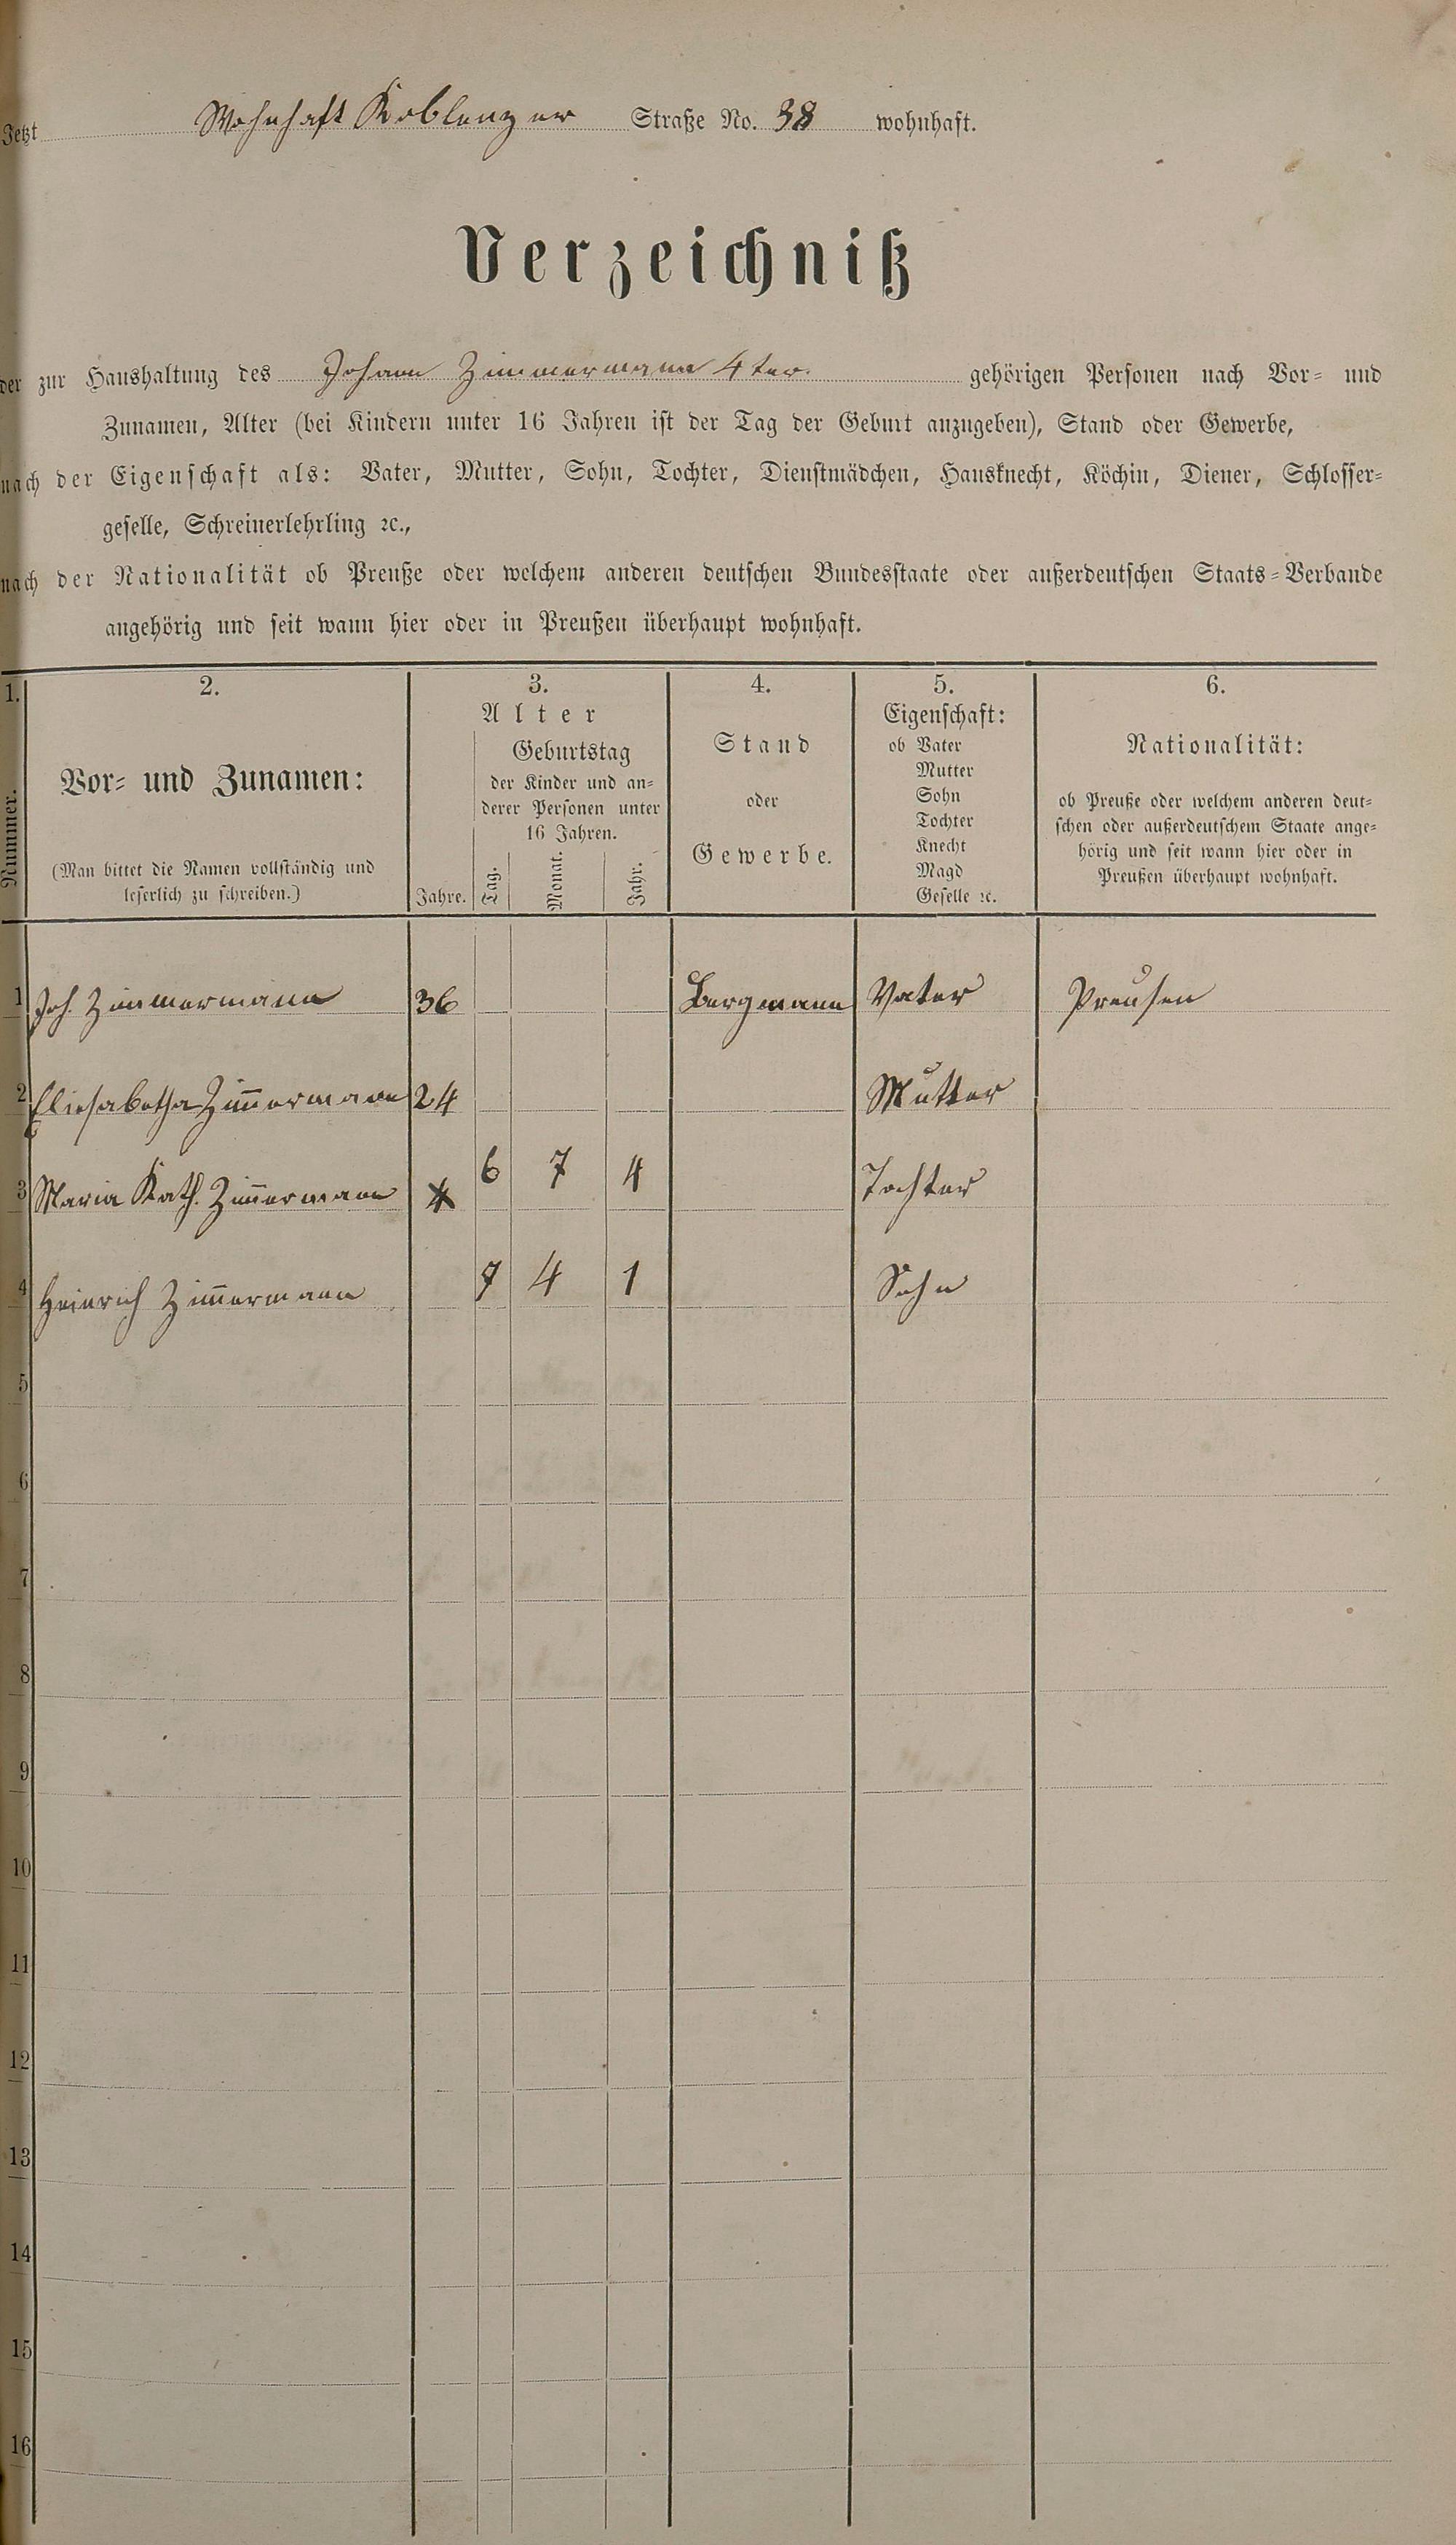 Jetzt Wohnhaft Koblenzer Straße No. 38 wohnhaft.
Verzeichniß
der zur Haushaltung des Johann Zimmermann 4ter. gehörigen Personen nach Vor- und
Zunamen, Alter (bei Kindern unter 16 Jahren ist der Tag der Geburt anzugeben), Stand oder Gewerbe,
nach der Eigenschaft als: Vater, Mutter, Sohn, Tochter, Dienstmädchen, Hausknecht, Köchin, Diener, Schlosser-
geselle, Schreinerlehrling ꝛc.,
nach der Nationalität ob Preuße oder welchem anderen deutschen Bundesstaate oder außerdeutschen Staats-Verbande
angehörig und seit wann hier oder in Preußen überhaupt wohnhaft.
1.
Nummer.
2.
Vor- und Zunamen:
(Man bittet die Namen vollständig und
leserlich zu schreiben.)
3.
Alter
Jahre.
Geburtstag
der Kinder und an-
derer Personen unter
16 Jahren.
Tag. Monat. Jahr.
4.
Stand
oder
Gewerbe.
5.
Eigenschaft:
ob Vater
Mutter
Sohn
Tochter
Knecht
Magd
Geselle ꝛc.
6.
Nationalität:
ob Preuße oder welchem anderen deut-
schen oder außerdeutschem Staate ange-
hörig und seit wann hier oder in
Preußen überhaupt wohnhaft.
1 Joh. Zimmermann 36 Bergmann Vater Preusen
2 Eliesabetha Zim̅ermann 24 Mutter
3 Maria Kath. Zim̅ermann 6 7 4 Tochter
4 Heinrich Zim̅ermann 7 4 1 Sohn
5
6
7
8
9
10
11
12
13
14
15
16